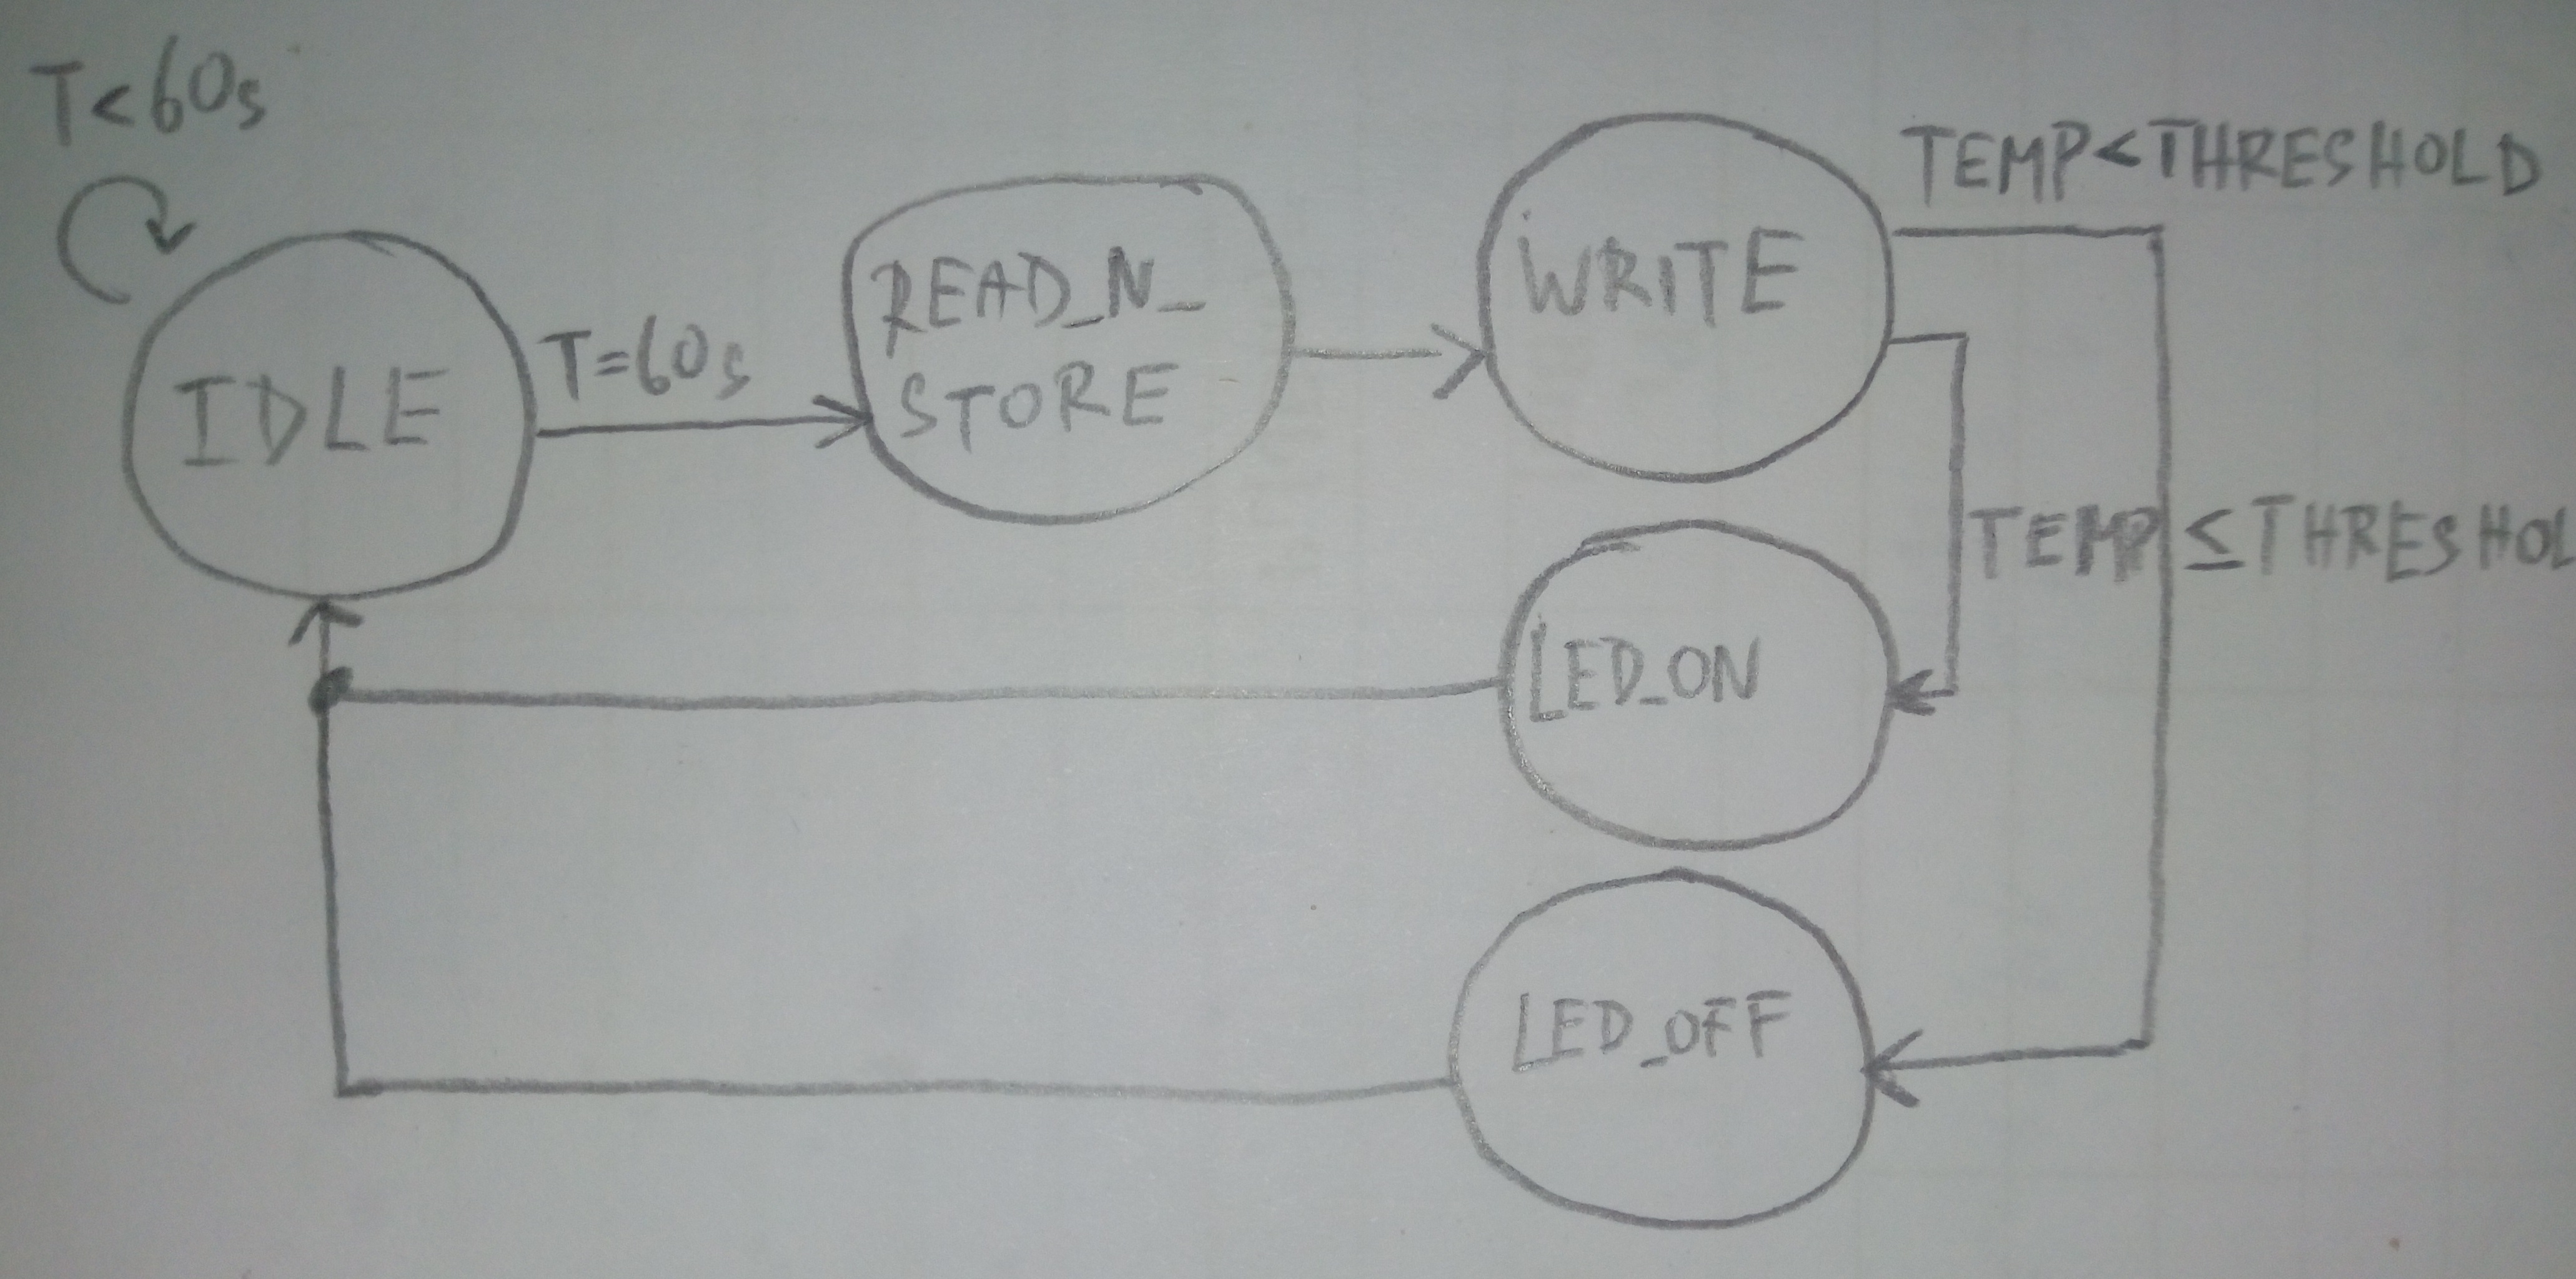 T<60s
IDLE
T=60s
READ_N_
STORE
WRITE
TEMP<THRESHOLD
TEMP≤THRESHOL
LED_ON
LED_OFF